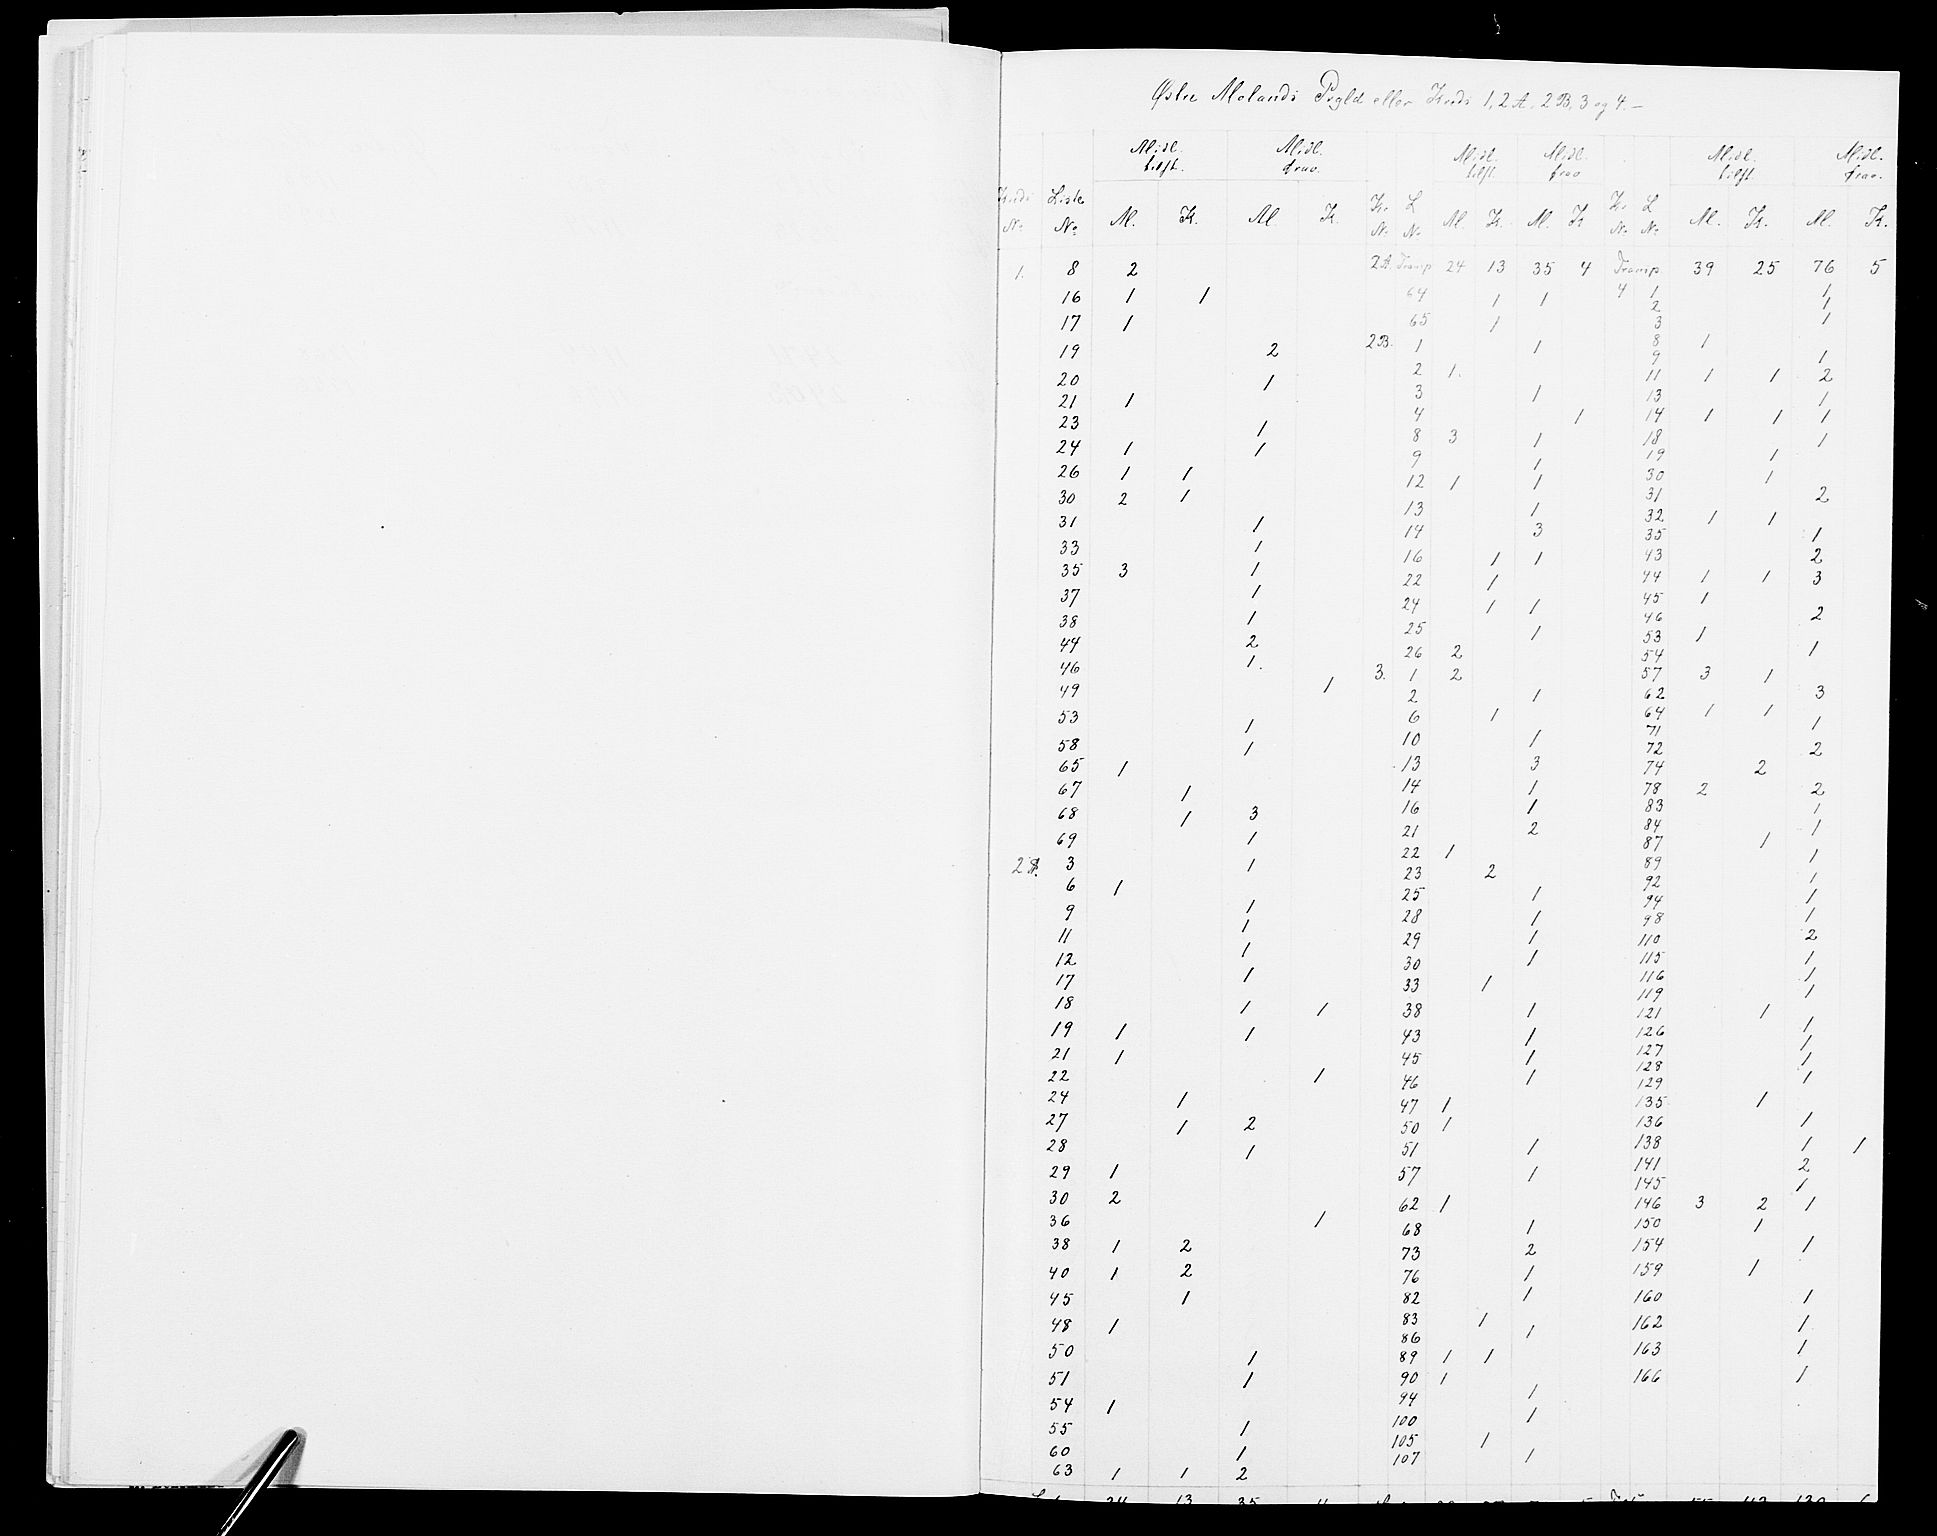 Østre Molands Prgld eller Kreds 1, 2 A, 2 B, 3 og 4. —
Midl. tilst. Midl. frav. Midl. tilst. Midl. frav Midl. tilst Midl. frav.
Kreds No Liste No M. K. M. K. Kr. No L No M. K. M. K Kr. No L No M. K. M. K.
1. 8 2
16 1 1
17 1
19 2
20 1
21 1
23 1
24 1 1
26 1 1
30 2 1
31 1
33 1
35 3 1
37 1
38 1
44 2
46 1.
49 1
53 1
58 1
65 1
67 1
68 1 3
69 1
2 A. 3 1
6 1
9 1
11 1
12 1
17 1
18 1 1
19 1 1
21 1
22 1
24 1
27 1 2
28 1
29 1
30 2
36 1
38 1 2
40 1 2
45 1
48 1
50 1
51 1
54 1
55 1
60 1
63 1 1 2
24 13 35 4
2 A. Transp 24 13 35 4
64 1 1
65 1
2 B. 1 1
2 1.
3 1
4 1
8 3 1
9 1
12 1 1
13 1
14 3
16 1 1
22 1
24 1 1
25 1
26 2
3. 1 2
2 1
6 1
10 1
13 3
14 1
16 1
21 2
22 1
23 2
25 1
28 1
29 1
30 1
33 1
38 1
43 1
45 1
46 1
47 1
50 1
51 1
57 1
62 1
68 1
73 2
76 1
82 1
83 1
86 1
89 1 1
90 1
94 1
100 1
105 1
107 1
Transp. 39 25 76 5
4 1 1
2 1
3 1
8 1
9 1
11 1 1 2
13 1
14 1 1 1
18 1
19 1
30 1
31 2
32 1 1
35 1
43 2
44 1 1 3
45 1
46 2
53 1
54 1
57 3 1
62 3
64 1 1
71 1
72 2
74 2
78 2 2
83 1
84 1
87 1
89 1
92 1
94 1
98 1
110 2
115 1
116 1
119 1
121 1
126 1
127 1
128 1
129 1
135 1
136 1
138 1 1
141 2
145 1
146 3 2 1
150 1
154 1
159 1
160 1
162 1
163 1
166 1